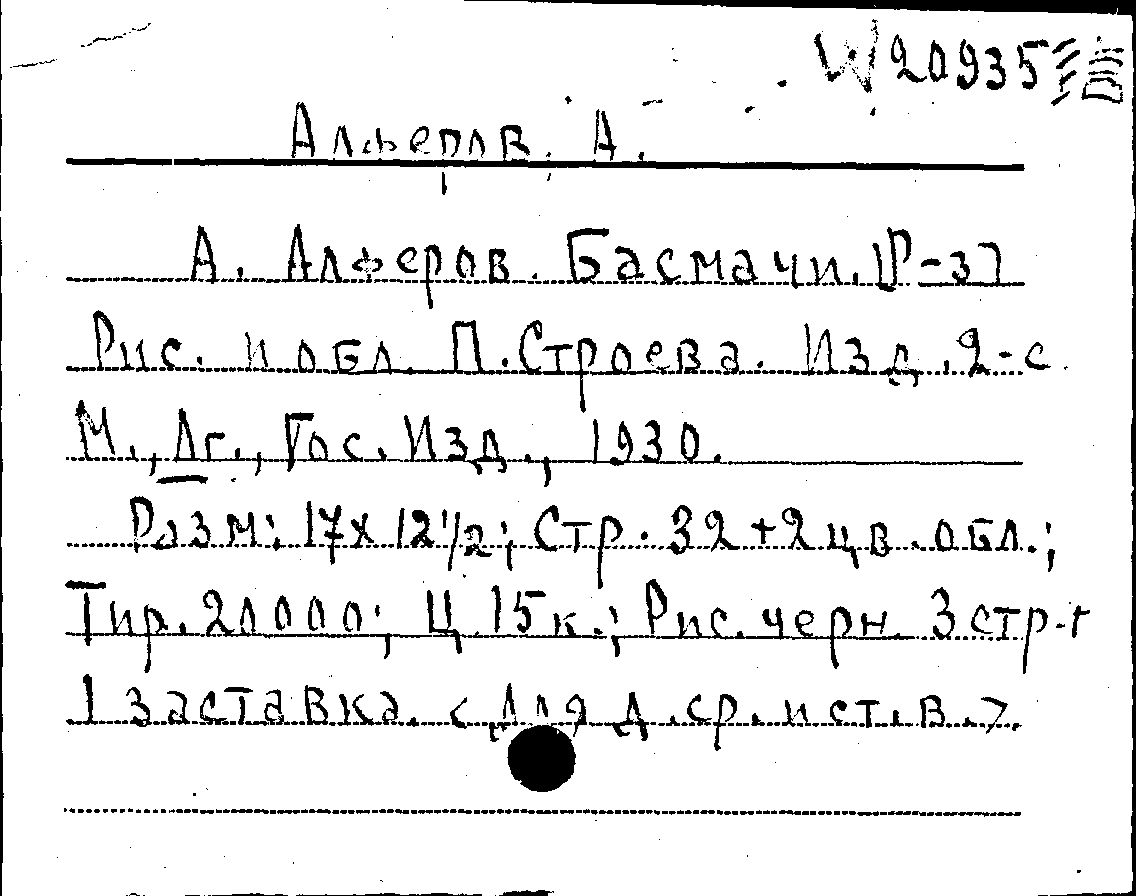 W 20935
Алферов, А.
А. Алферов. Басмачи. [Р-з]
Рис. и обл. П. Строева. Изд. 2-е
М., Лг., Гос. Изд., 1930.
Разм: 17х12 1/2; Стр. 32+2 цв. обл.;
Тир. 20000; Ц. 15к.; Рис. черн. 3 стр +
1 заставка. <Для д. ср. и ст. в.>.